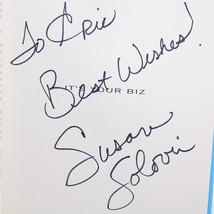 To Eric
Best Wishes!
IT'S YOUR BIZ
Susan
Solovic